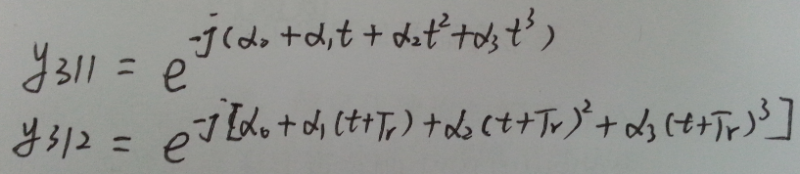 y₃₁₁ = e^{-j(α₀ + α₁t + α₂t² + α₃t³)}
y₃₁₂ = e^{-j[α₀ + α₁(t+Tr) + α₂(t+Tr)² + α₃(t+Tr)³]}